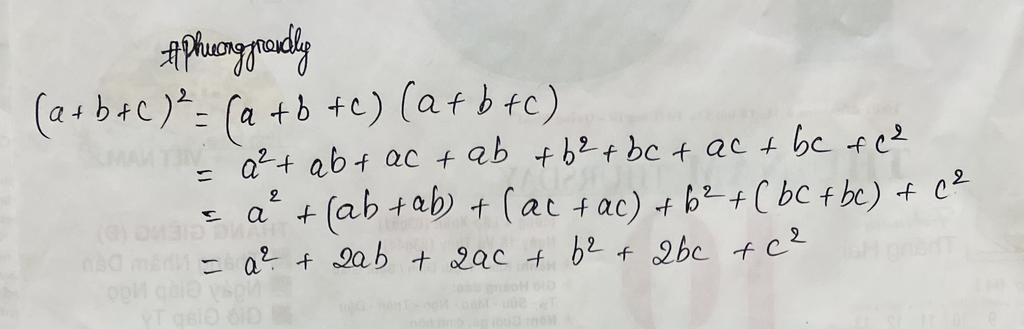 #Phuongfrandly
(a+b+c)² = (a+b+c)(a+b+c)
= a²+ab+ac+ab+b²+bc+ac+bc+c²
= a²+(ab+ab)+(ac+ac)+b²+(bc+bc)+c²
= a²+2ab+2ac+b²+2bc+c²